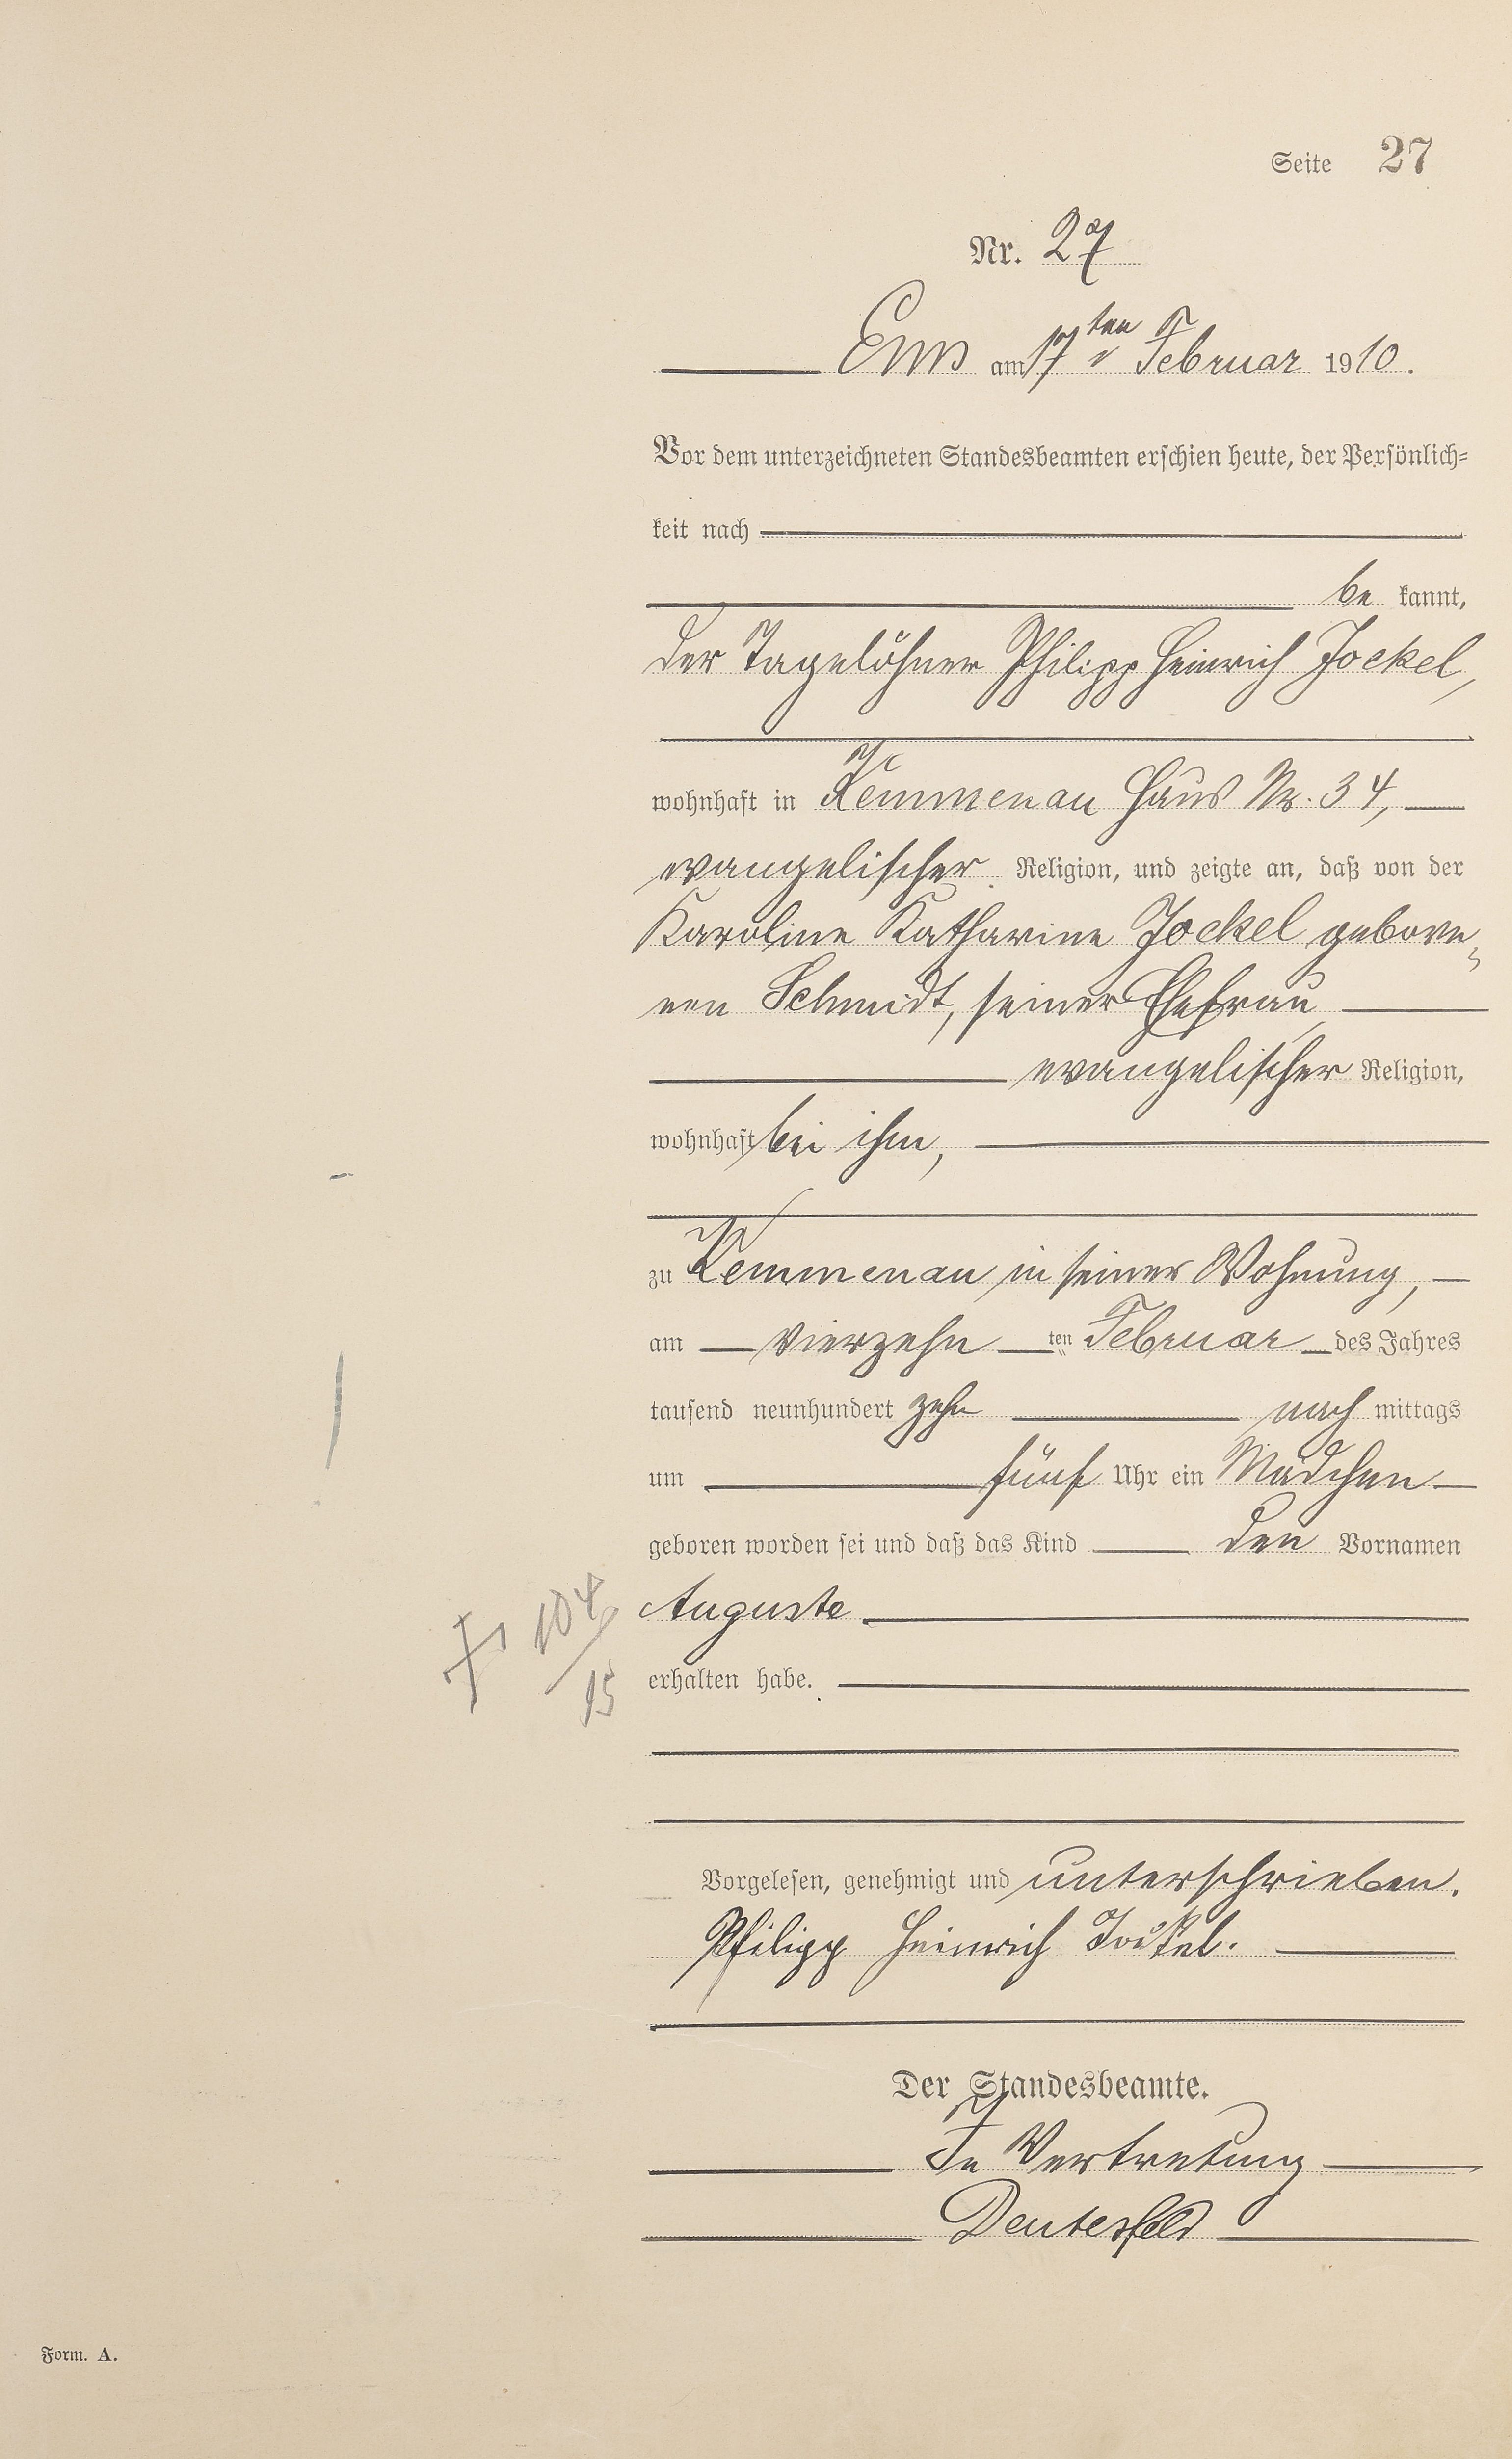 Seite 27
Nr. 27
Ems am 17ten Februar 1910.
Vor dem unterzeichneten Standesbeamten erschien heute, der Persönlich-
keit nach
be kannt,
der Tagelöhner Philipp Heinrich Jockel,
wohnhaft in Kemmenau Haus Nr. 34,
evangelischer Religion, und zeigte an, daß von der
Karoline Katharine Jockel gebore-
nen Schmidt, seiner Ehefrau
evangelischer Religion,
wohnhaft bei ihm,
zu Kemmenau in seiner Wohnung,
am vierzehn ten Februar des Jahres
tausend neunhundert zehn nach mittags
um fünf Uhr ein Mädchen
geboren worden sei und daß das Kind den Vornamen
Auguste
† 104/15
erhalten habe.
Vorgelesen, genehmigt und unterschrieben.
Philipp Heinrich Jockel.
Der Standesbeamte.
In Vertretung
Deutesfeld
Form. A.